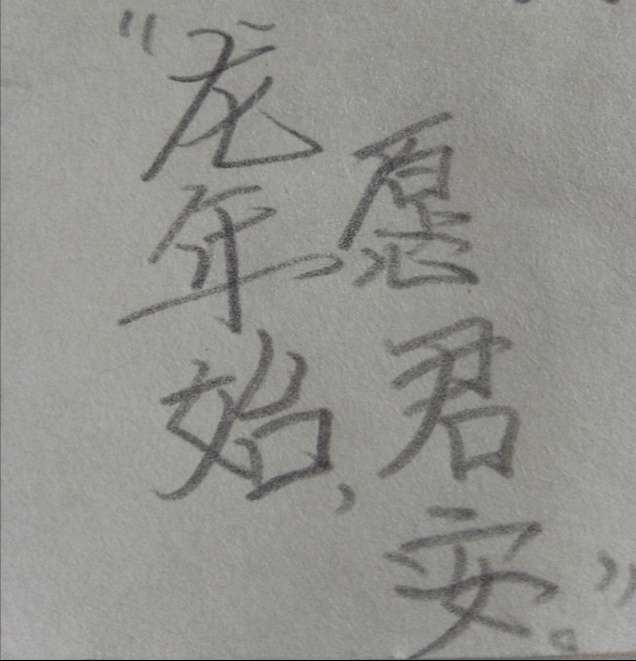 “龙年始，
愿君安。”